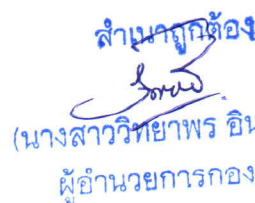 สำเนาถูกต้อง
(นางสาววิทยาพร อิน
ผู้อำนวยการกอง